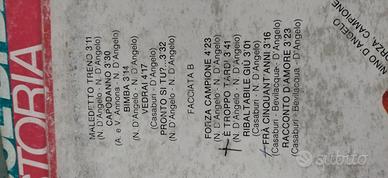 MALEDETTO TRENO 3'11
(N. D'Angelo - N. D'Angelo)
CAPODANNO 3'30
(A. e V. Annona - N. D'Angelo)
BIMBA 3'14
(N. D'Angelo - N. D'Angelo)
VEDRAI 4'17
(Casaburi - D'Angelo - D'Angelo)
PRONTO SI TU?.. 3'32
(N. D'Angelo - N. D'Angelo)
FACCIATA B
FORZA CAMPIONE 4'23
(N. D'Angelo - N. D'Angelo)
È TROPPO TARDI 3'41
(N. D'Angelo - N. D'Angelo)
RIBALTABILE GIÙ 3'01
(Casaburi - N. D'Angelo)
FRA CINQUANT'ANNI 3'16
(Casaburi - Bevilacqua - D'Angelo)
RACCONTO D'AMORE 3'23
(Casaburi - Bevilacqua - D'Angelo)
NINO D'ANGELO
FORZA CAMPIONE
STORIA
subito